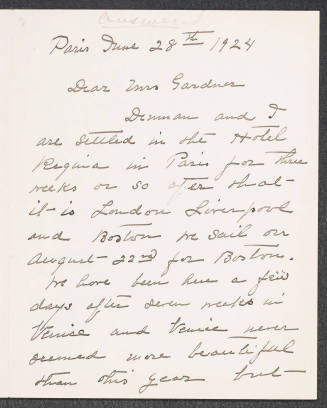 answered
Paris June 28th 1924
Dear Mrs Gardner
Denman and I
are settled in the Hotel
Regina in Paris for three
weeks or so after that
it is London Liverpool
and Boston we sail on
August 22nd for Boston.
We have been here a few
days after seven weeks in
Venice and Venice never
seemed more beautiful
than this year but